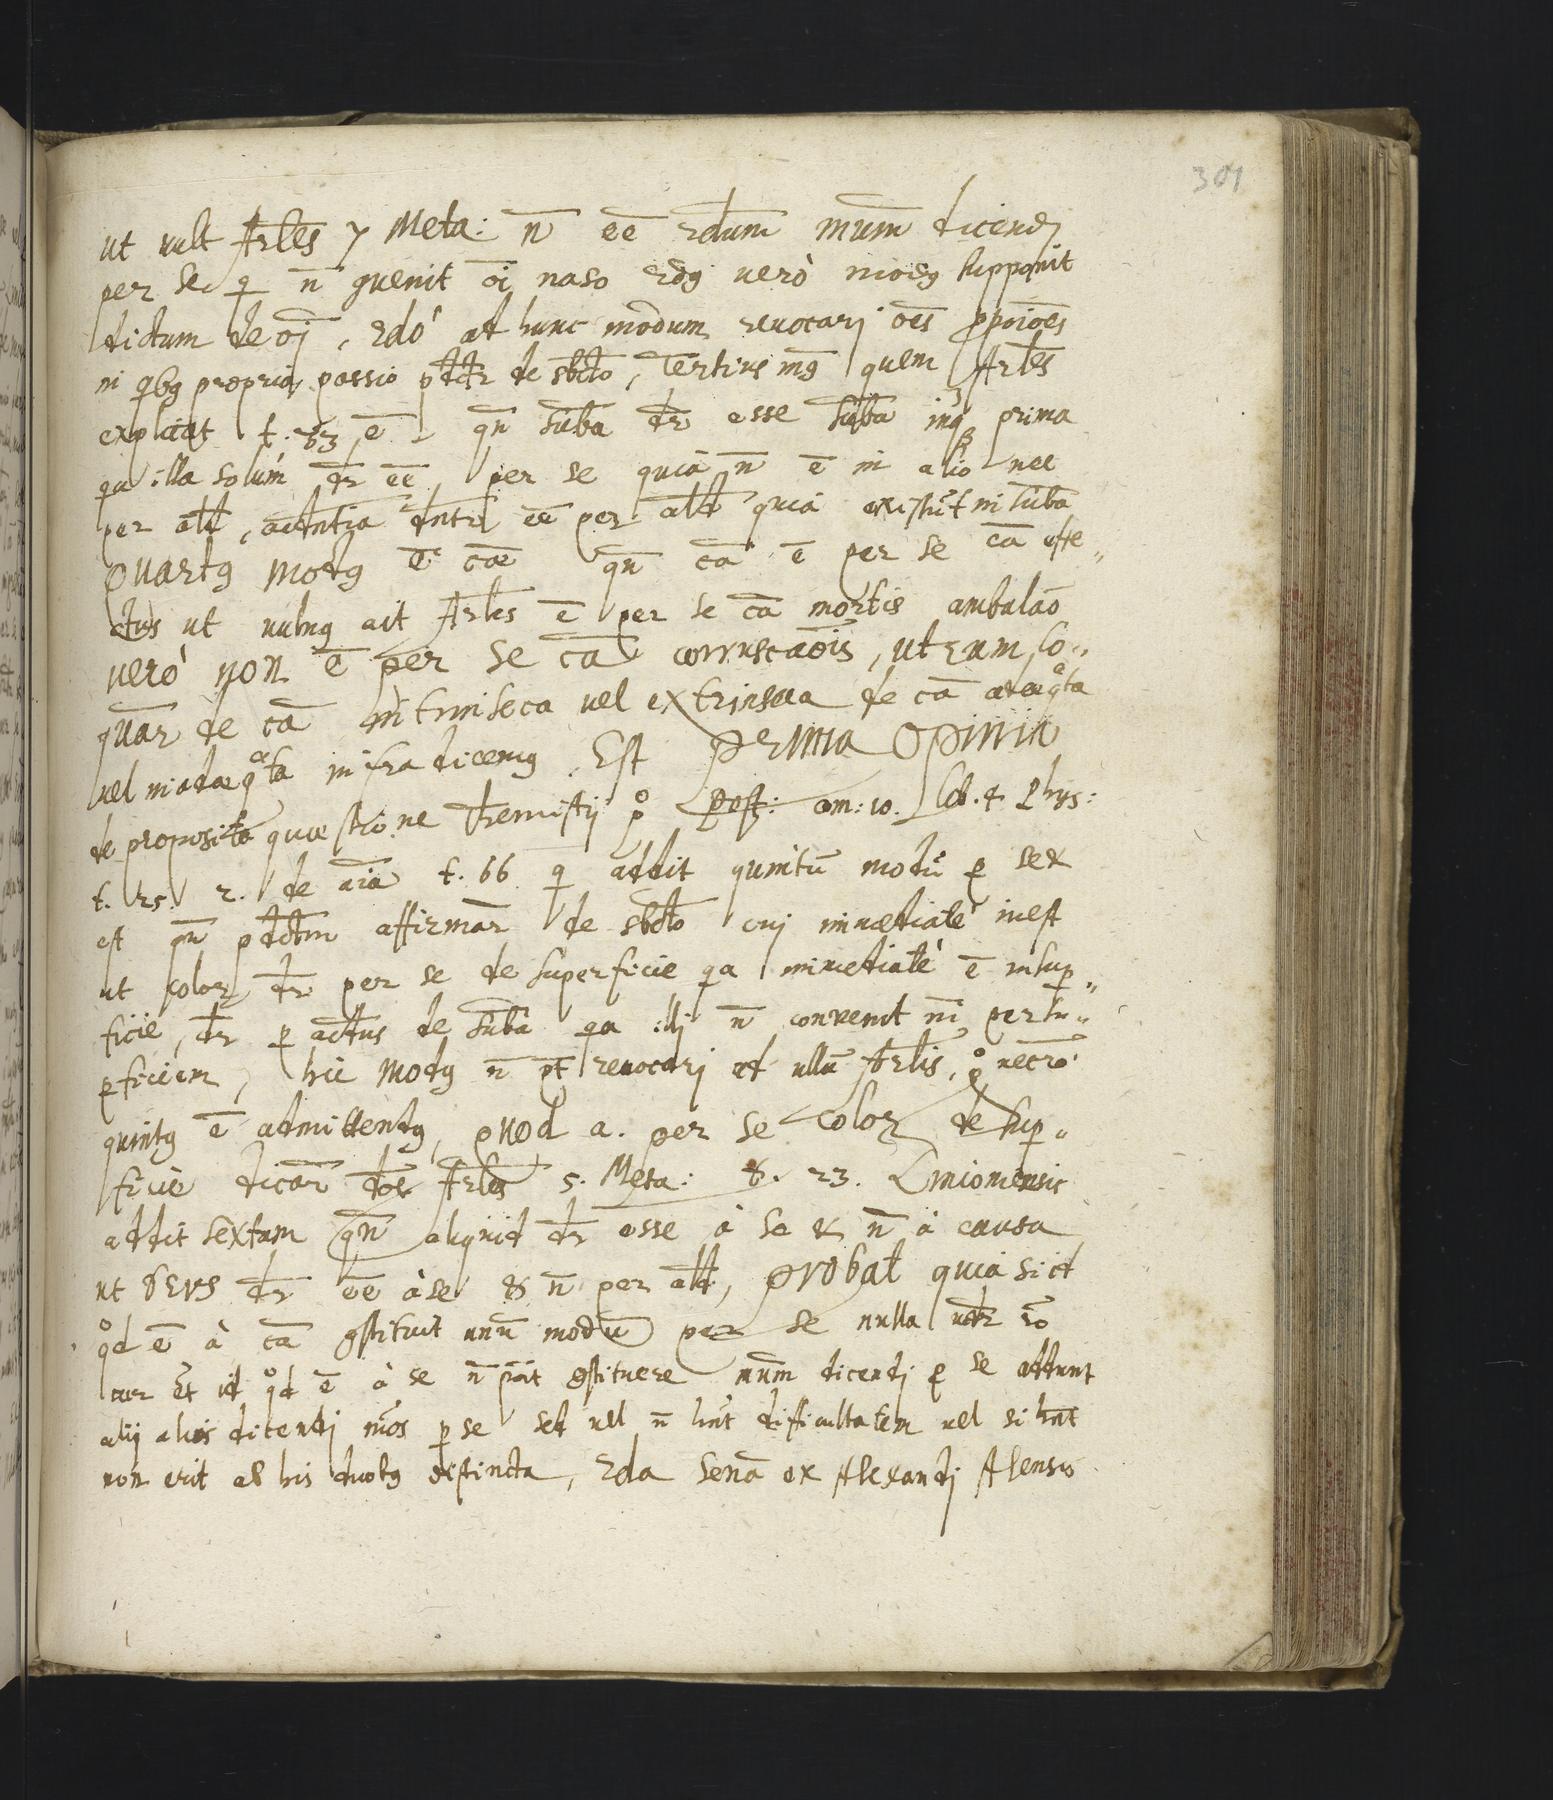 301
ut vult Arles 7 Meta: n̄ eē 2dum mum dicendj
per se q n̄ 9uenit oī naso 2dg uerò modg supponit
dictum de oj, 2dó ad hunc modum reuocarj oēs ppoiōes
in qbg propria passio pdctr de sbcto, Tertius mg quem Arles
explicat t. ē qn̄ suba dr esse suba prima
qa illa solúm dr eē per se quia n̄ ē in alio nec
per ald, acdntia dntr eē per ald quia existut in suba
Quartg modg ē cāe qn̄ cā ē per se cā effe„
ctus ut uulng ait Arles ē per se cā mortis ambulaō
uerò non ē per se cā corruscaōis, utrum lo„
quar de cā intrinseca uel extrinseca de cā adaeqta
uel inadaeqta infra dicemg. Est Prima Opinio
de proposita quaestione Themistij po Post: om: 10. lib. 4. Phys:
t. 25. 2. de aīa t. 66 q addit quintū modū p se &
est qn̄ pdctm affirmar de sbcto cuj immediatè inest
ut color dr per se de superficie qa immediatè ē in sup„
ficie, dr p actus de subā qa illj n̄ convenit nī per su„
pficiem, hic modg n̄ pt reuocarj ad ullū Arlis, po necro
quintg ē admittendg, Quod a. per se Color de sup„
ficie dicar doc Arles 5. Meta: t. 23.
addit sextum qn̄ aliquid dr esse à se & n̄ à causa
ut Deus dr eē à se & n̄ per ald, Probat quia sicut
qd ē à cā 9stituit unū modū per se nulla udr rō
cur et id qd ē à se n̄ poit 9stituere mum dicendj p se addunt
alij alios dicendj mos p se sed uel n̄ hnt difficultatem uel si hnt
non erit ab his duobg distincta, 2da senā ex Alexandj Alensis